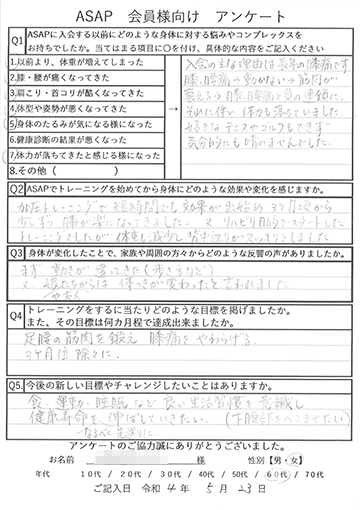 ASAP 会員様向け アンケート
Q1 ASAPに入会する以前にどのような身体に対する悩みやコンプレックスを
お持ちでしたか。当てはまる項目に〇を付け、具体的な内容をご記入ください
1.以前より、体重が増えてしまった
2.膝・腰が痛くなってきた
3.肩こり・首コリが酷くなってきた
4.体型や姿勢が悪くなってきた
5.身体のたるみが気になる様になった
6.健康診断の結果が悪くなった
7.体力が落ちてきたと感じる様になった
8.その他( )
→
入会の主な理由は長年の膝痛です
膝、腰痛→動かない→筋肉が
衰える→膝、腰痛と負の連鎖に。
それに伴い体力も落ちていました。
好きなテニスやゴルフもできず
気分的にも晴れませんでした。
Q2 ASAPでトレーニングを始めてから身体にどのような効果や変化を感じますか。
加圧トレーニングで短時間でも効果が出始め 3ヶ月頃から
少しずつ膝が楽になってきました。又 リハビリ目的でスタートした
トレーニングでしたが 体重も減少し
Q3 身体が変化したことで、家族や周囲の方々からどのような反響の声がありましたか。
まず 動きが違ってきた(歩き方など)
又 娘たちからは 体つきが変わったと言われました
Q4 トレーニングをするに当たりどのような目標を掲げましたか。
また、その目標は何カ月程で達成出来ましたか。
足腰の筋肉を鍛え 膝痛をやわらげる。
3ヶ月位 除々に。
Q5. 今後の新しい目標やチャレンジしたいことはありますか。
食、運動、睡眠など良い生活習慣を意識し
健康寿命を伸ばしていきたい。(下腹部をへこませたい)
なるべく先送りに
アンケートのご協力誠にありがとうございました。
お名前 様 性別【男・女】
年代 10代 / 20代 / 30代 / 40代 / 50代 / 60代 / 70代
ご記入日 令和 4年 5月 23日